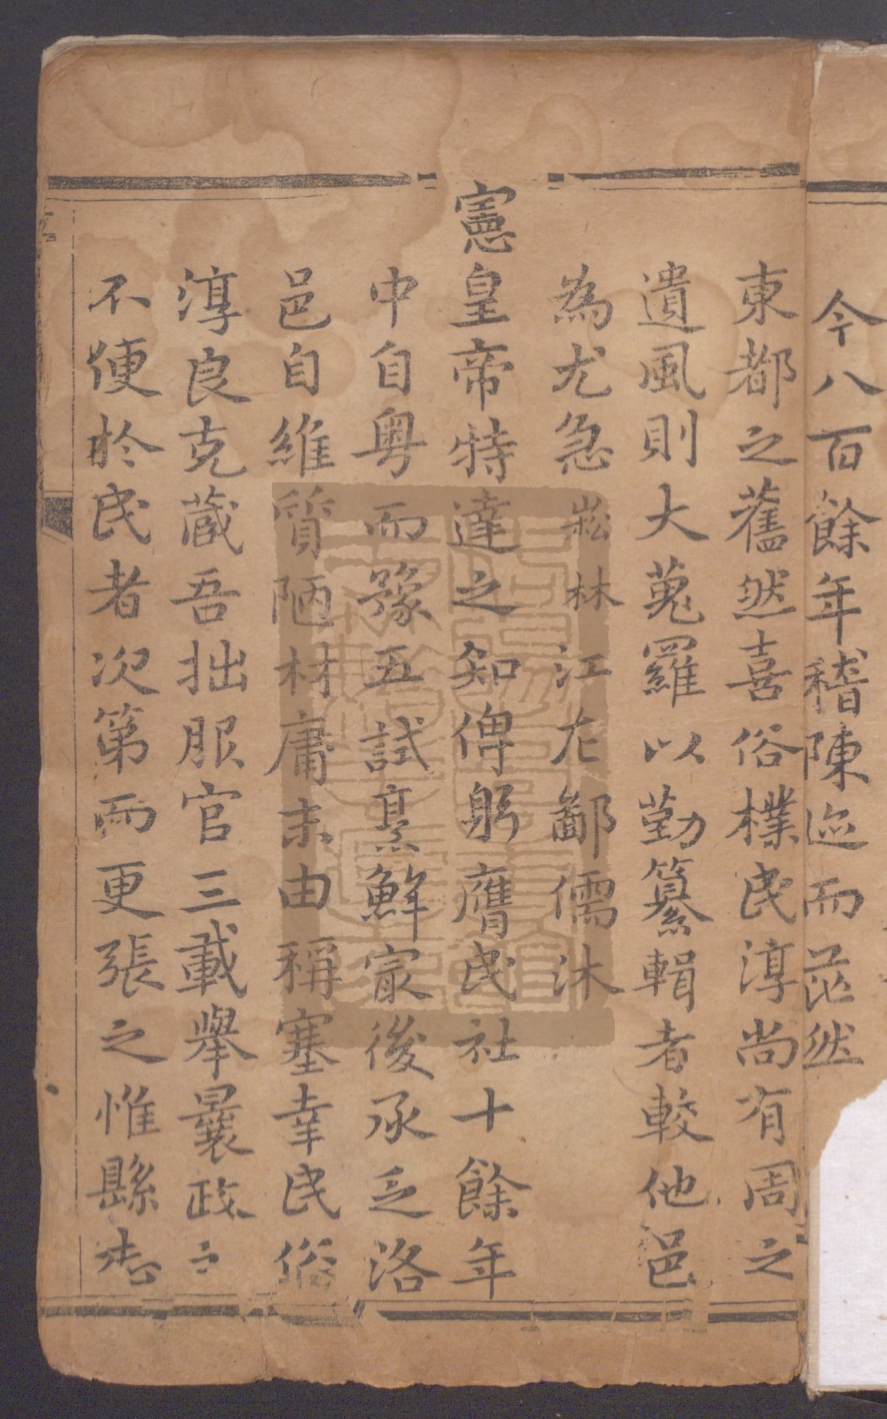 今八百餘年稽陳迹而茫然
東都之舊然喜俗樸民淳尚有周之
遺風則大蒐羅以勤纂輯者較他邑
為尤急崧林江左鄙儒沐
憲皇帝特達之知俾躬膺民社十餘年
中自粵而豫五試烹鮮㝡後承乏洛
邑自維質陋材庸末由稱塞幸民俗
淳良克蔵吾拙服官三載舉曩政之
不便於民者次第而更張之惟縣志